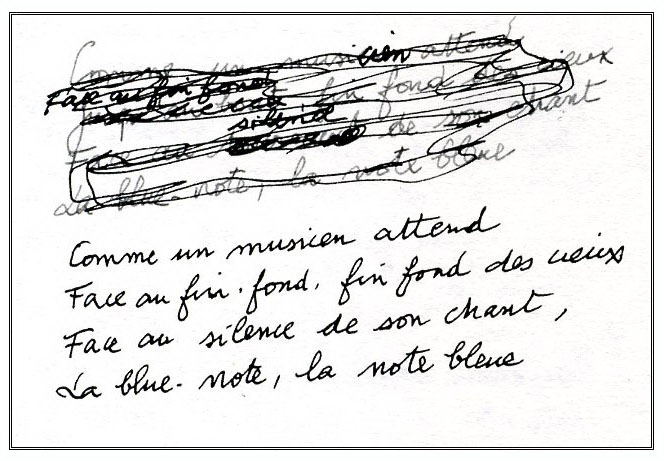 Comme un musicien attend
Face au fin fond fin fond des cieux
silence
Face au de son chant
La blue-note, la note bleue
Comme un musicien attend
Face au fin. fond, fin fond des cieux
Face au silence de son chant,
La blue-note, la note bleue